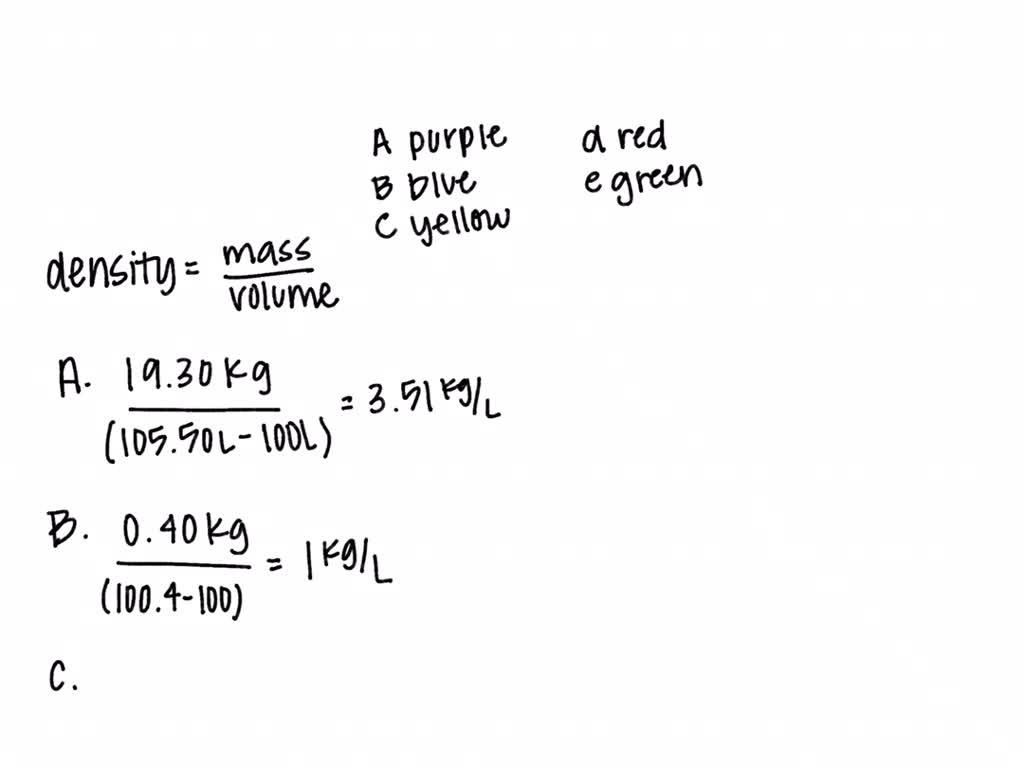 A purple
B blue
C yellow
d red
e green
density = mass
volume
A. 19.30 kg
(105.50L - 100L)
= 3.51 kg/L
B. 0.40 kg
(100.4 - 100)
= 1 kg/L
C.